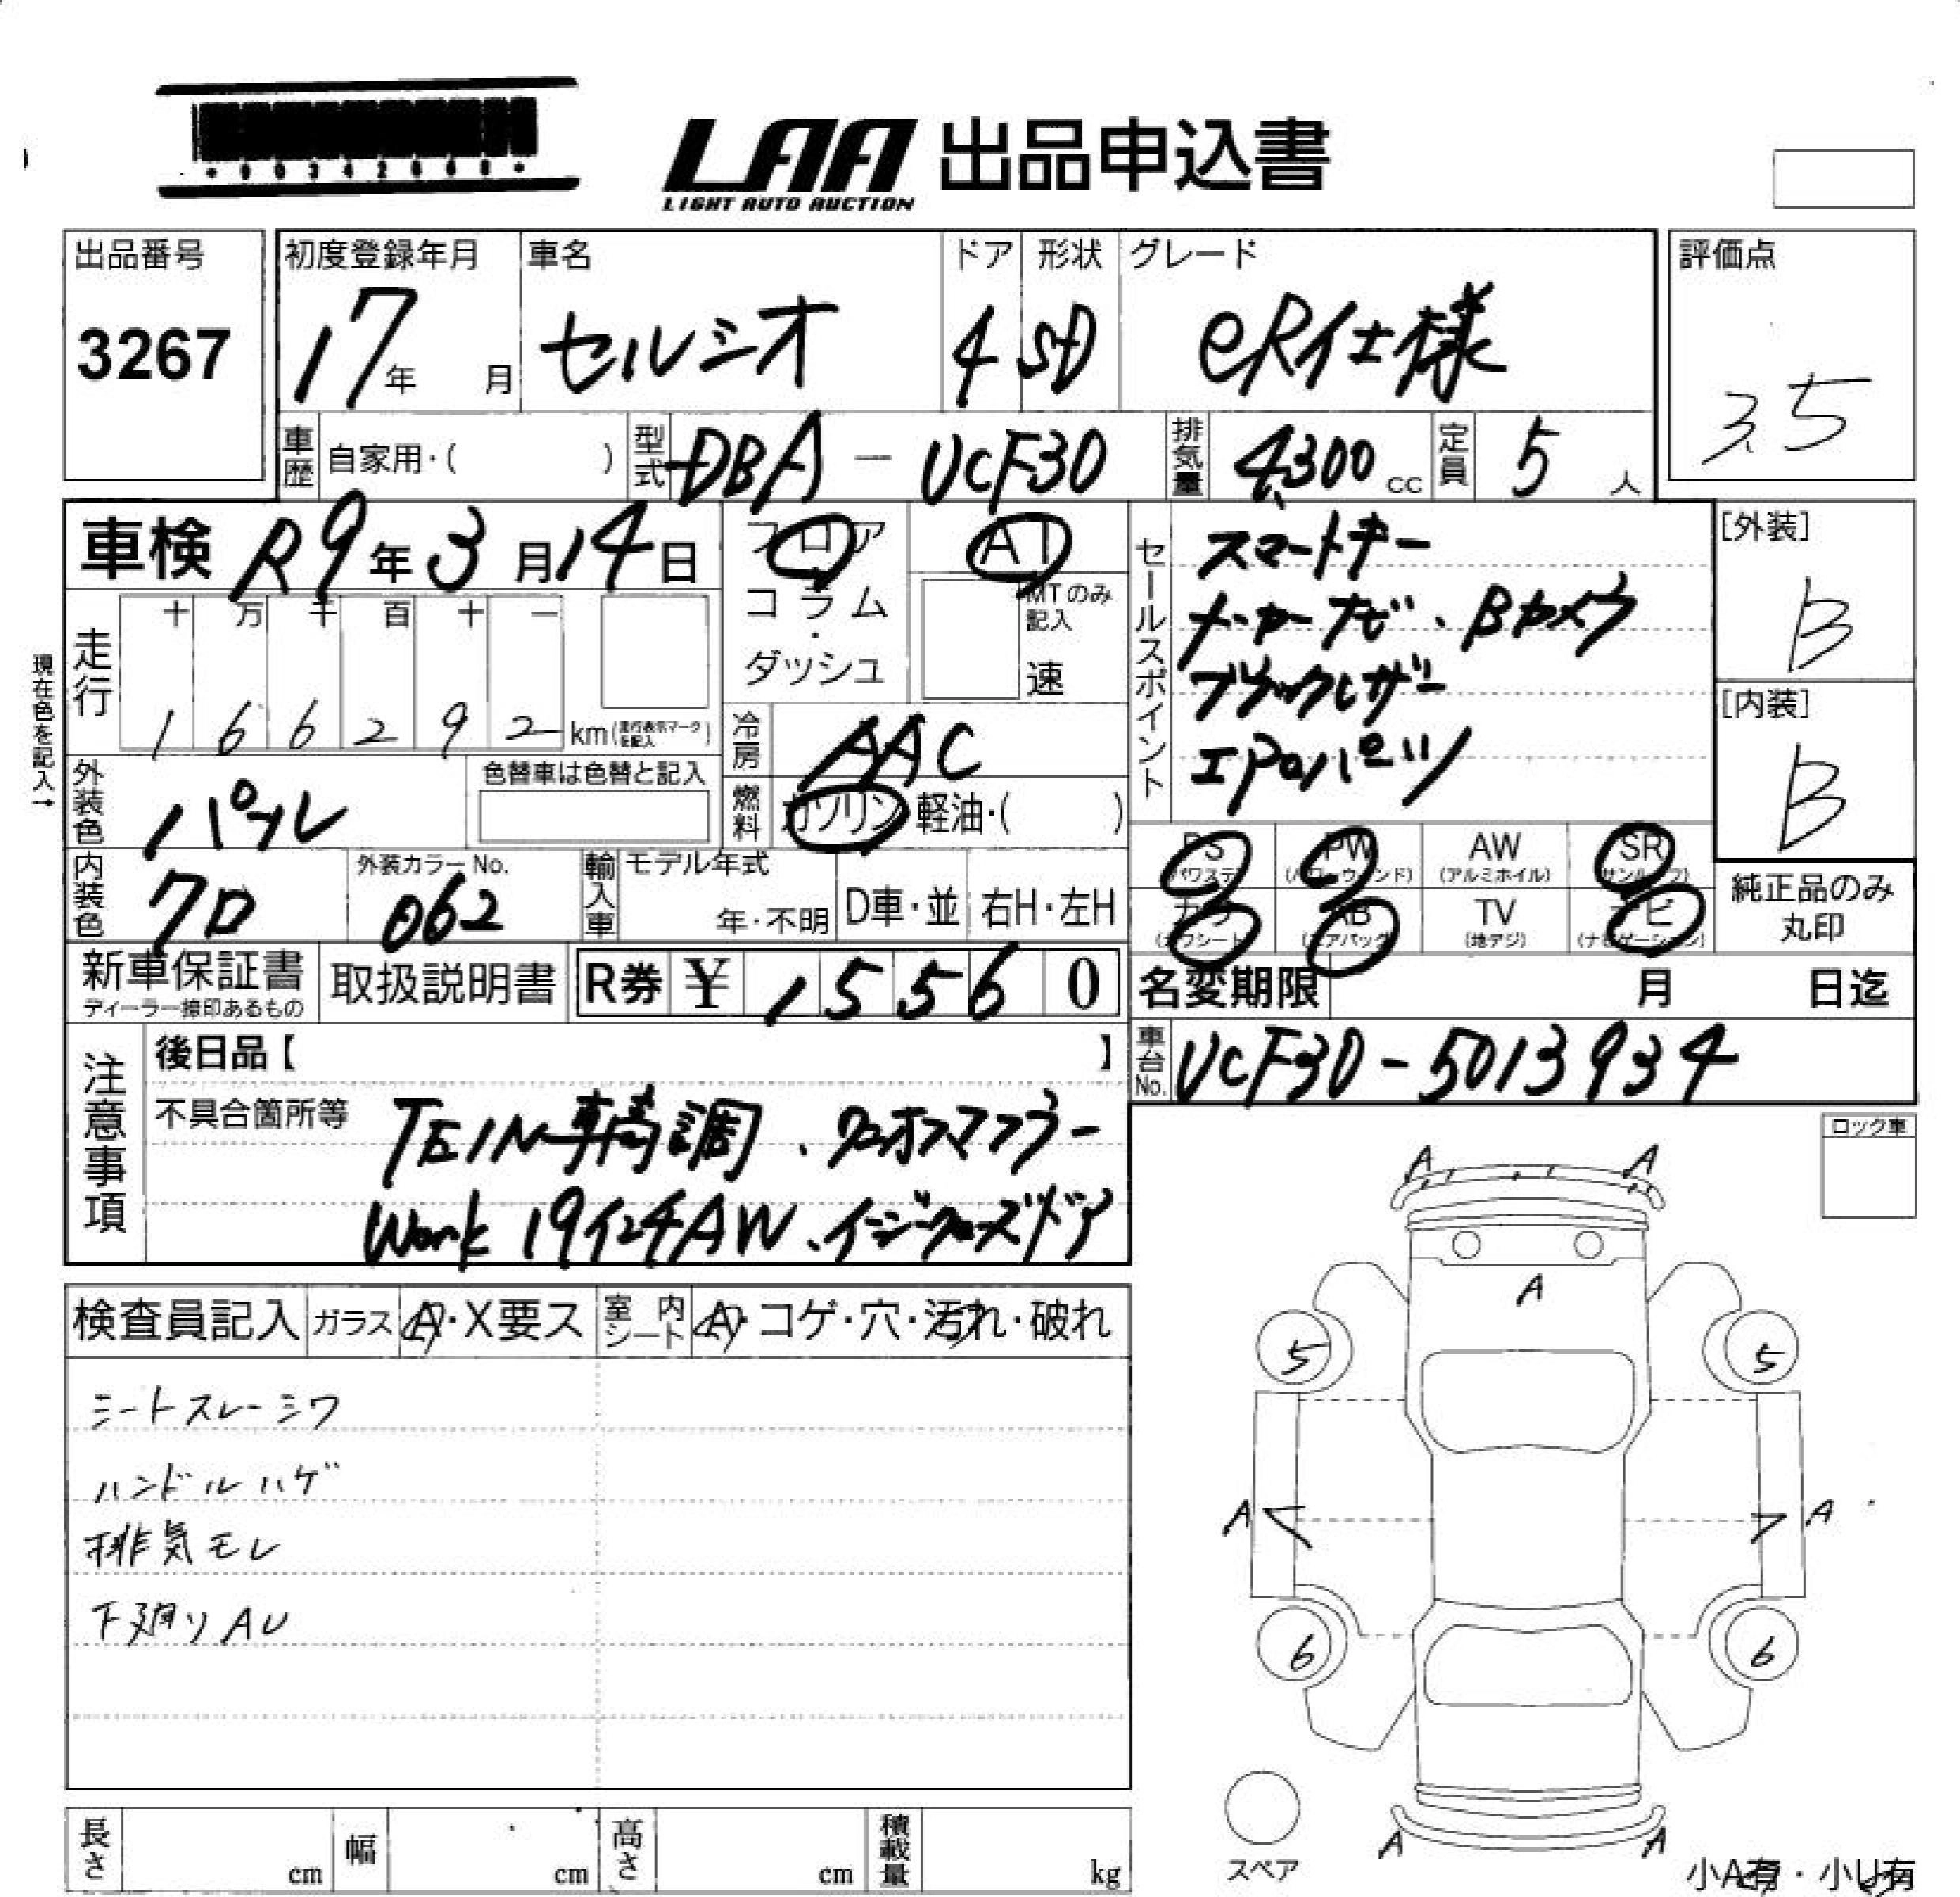 LAA 出品申込書
LIGHT AUTO AUCTION
出品番号
3267
初度登録年月
17年 月
車名
セルシオ
ドア
4
形状
SD
グレード
eR仕様
評価点
3.5
車歴 自家用・( )
型式 DBA-UCF30
排気量 4,300 cc
定員 5 人
車検 R9年3月14日
フロア
コラム
・
ダッシュ
AT
MTのみ記入
速
セールスポイント
スマートキー
メーカーナビ、Bカメラ
ブラックレザー
エアロパーツ
[外装]
B
[内装]
B
現在色を記入→
走行
十 万 千 百 十 一
1 6 6 2 9 2 km(走行表示マークを記入)
冷房 AAC
外装色 パール
色替車は色替と記入
燃料 ガソリン・軽油・( )
内装色 クロ
外装カラーNo.
062
輸入車
モデル年式
年・不明
D車・並
右H・左H
PS (パワステ)
PW (パワーウィンド)
AW (アルミホイル)
SR (サンルーフ)
カワ (カワシート)
AB (エアバック)
TV (地デジ)
ナビ (ナビゲーション)
純正品のみ
丸印
新車保証書
ディーラー捺印あるもの
取扱説明書
R券 ¥ 15560
名変期限 月 日迄
注意事項
後日品【 】
車台No. UCF30-5013934
不具合箇所等 TEIN車高調、ワンオフマフラー
Work 19インチAW、イージークローズドア
ロック車
検査員記入
ガラス A・X要ス
室内シート A・コゲ・穴・汚れ・破れ
シートスレーシワ
ハンドルハゲ
排気モレ
下廻りAU
A A
A
5 5
A A
6 6
A A
スペア
小A有・小U有
長さ cm
幅 cm
高さ cm
積載量 kg